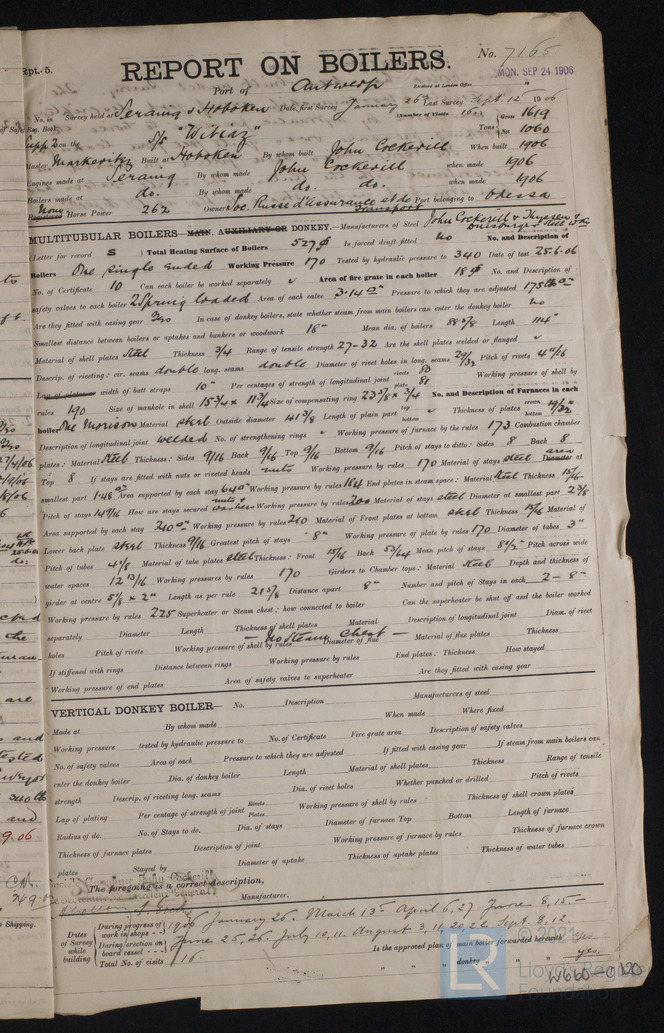 Rpt. 5.
No. 7165
REPORT ON BOILERS.
Port of Antwerp
Received at London Office MON. SEP 24 1906
No. in Survey held at Seraing & Hoboken Date, first Survey January 26th Last Survey Sept. 12th 1906
Reg. Book. (Number of Visits 16 )
on the S/S "Witiaz" Tons Gross 1619 Net 1060
Master Built at Hoboken By whom built John Cockerill When built 1906
Engines made at Seraing By whom made John Cockerill when made 1906
Boilers made at do. By whom made do. do. when made 1906
Registered Horse Power 262 Owners Soc. Russe d'Assurance et de transport Port belonging to Odessa
MULTITUBULAR BOILERS— MAIN, AUXILIARY OR DONKEY.—Manufacturers of Steel John Cockerill & Thyssen
(Letter for record S ) Total Heating Surface of Boilers 527 Is forced draft fitted no No. and Description of
Boilers One single Ended Working Pressure 170 Tested by hydraulic pressure to 340 Date of test 25-6-06
No. of Certificate 10 Can each boiler be worked separately ✓ Area of fire grate in each boiler 18 No. and Description of
safety valves to each boiler 2 Spring loaded Area of each valve 3.14 Pressure to which they are adjusted 175
Are they fitted with easing gear Yes In case of donkey boilers, state whether steam from main boilers can enter the donkey boiler no
Smallest distance between boilers or uptakes and bunkers or woodwork 18" Mean dia. of boilers 88 5/8 Length 114"
Material of shell plates Steel Thickness 3/4 Range of tensile strength 27-32 Are the shell plates welded or flanged ✓
Descrip. of riveting: cir. seams double long. seams double Diameter of rivet holes in long. seams 29/32 Pitch of rivets 4 11/16
Lap of plates or width of butt straps 10" Per centages of strength of longitudinal joint rivets plate Working pressure of shell by
rules 190 Size of manhole in shell 15 3/4 x 11 3/4 Size of compensating ring 23 5/8 x 3/4 No. and Description of Furnaces in each
boiler One Morison Material steel Outside diameter 41 3/8 Length of plain part top bottom Thickness of plates crown bottom 19/32
Description of longitudinal joint welded No. of strengthening rings ✓ Working pressure of furnace by the rules 173 Combustion chamber
plates: Material Steel Thickness: Sides 9/16 Back 9/16 Top 9/16 Bottom 9/16 Pitch of stays to ditto: Sides 8 Back 8
Top 8 If stays are fitted with nuts or riveted heads nuts Working pressure by rules 170 Material of stays steel area Diameter at
smallest part 1.48 Area supported by each stay 64 Working pressure by rules 184 End plates in steam space: Material Steel Thickness 15/16
Pitch of stays 14 9/16 How are stays secured nuts & washers Working pressure by rules 200 Material of stays steel Diameter at smallest part 2 3/8
Area supported by each stay 240 Working pressure by rules 210 Material of Front plates at bottom steel Thickness 15/16 Material of
Lower back plate steel Thickness 9/16 Greatest pitch of stays 8" Working pressure of plate by rules 170 Diameter of tubes 3"
Pitch of tubes 4 1/8 Material of tube plates steel Thickness: Front 15/16 Back 57/64 Mean pitch of stays 8 1/2" Pitch across wide
water spaces 12 13/16 Working pressures by rules 170 Girders to Chamber tops: Material Steel Depth and thickness of
girder at centre 5 1/8 x 2" Length as per rule 21 5/8 Distance apart 8" Number and pitch of Stays in each 2 - 8"
Working pressure by rules 225 Superheater or Steam chest; how connected to boiler Can the superheater be shut off and the boiler worked
separately Diameter Length Thickness of shell plates Material Description of longitudinal joint Diam. of rivet
holes Pitch of rivets Working pressure of shell by rules — no steam chest — Diameter of flue Material of flue plates Thickness
If stiffened with rings Distance between rings Working pressure by rules End plates: Thickness How stayed
Working pressure of end plates Area of safety valves to superheater Are they fitted with easing gear
VERTICAL DONKEY BOILER— No. Description Manufacturers of steel
Made at By whom made When made Where fixed
Working pressure tested by hydraulic pressure to No. of Certificate Fire grate area Description of safety valves
No. of safety valves Area of each Pressure to which they are adjusted If fitted with easing gear If steam from main boilers can
enter the donkey boiler Dia. of donkey boiler Length Material of shell plates Thickness Range of tensile
strength Descrip. of riveting long. seams Dia. of rivet holes Whether punched or drilled Pitch of rivets
Lap of plating Per centage of strength of joint Rivets Plates Working pressure of shell by rules Thickness of shell crown plates
Radius of do. No. of Stays to do. Dia. of stays Diameter of furnace Top Bottom Length of furnace
Thickness of furnace plates Description of joint Working pressure of furnace by rules Thickness of furnace crown
plates Stayed by Diameter of uptake Thickness of uptake plates Thickness of water tubes
The foregoing is a correct description,
Manufacturer.
Dates of Survey while building During progress of work in shops 1906 January 26. March 13. April 6, 27. June 8, 15.
During erection on board vessel June 25, 26. July 10, 11. August 3, 11, 20, 22. Sept. 8, 12.
Total No. of visits 16. Is the approved plan of main boiler forwarded herewith Yes
" " donkey " " " yes.
© 2021
LR
Lloyd's Register
Foundation
W660-0120